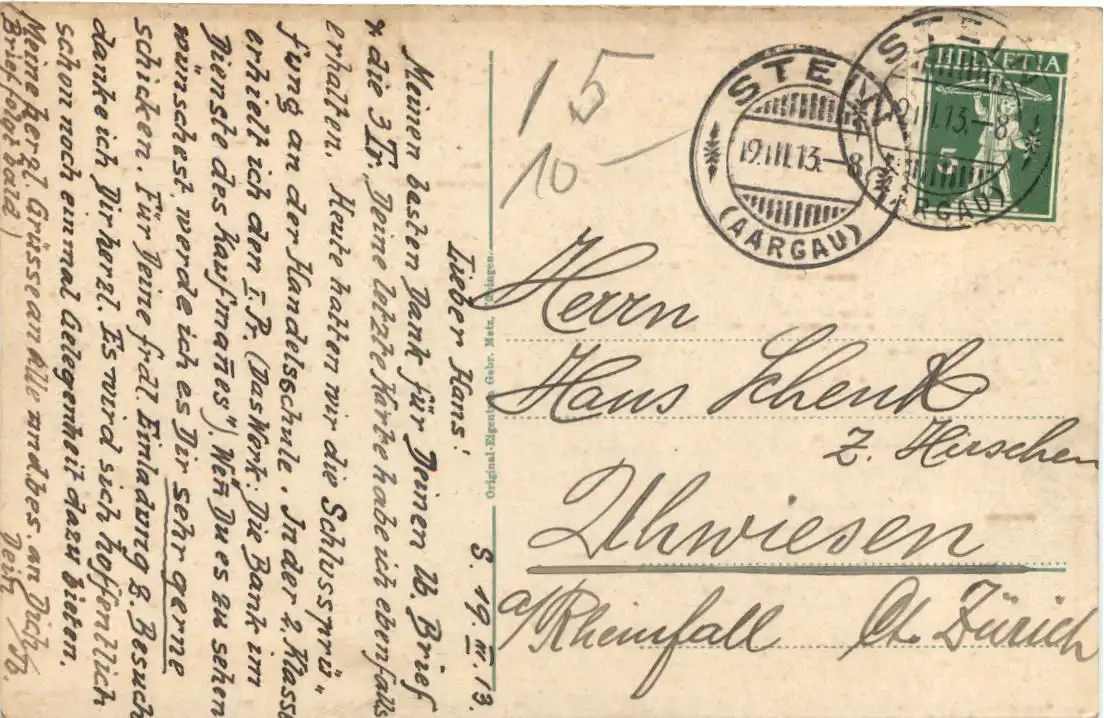 S. 19. III. 13.
Lieber Hans!
Meinen basten Dank für Deinen lb. Brief
die 3 Deine letzte Karte habe ich ebenfalls
erhalten. Heute hatten wir die Schlussprü"
fung an der Handelsschule. In der 2. Klasse
erhielt ich den I. Pr. (Das Werk: Die Bank im
Dienste des Kaufmañes") Weñ Du es zu sehen
wünschest, werde ich es Dir sehr gerne
schicken. Für Deine frdl. Einladung z. Besuch
danke ich Dir herzl. Es wird sich hoffentlich
schon noch einmal Gelegenheit dazu bieten.
Meine herzl. Grüsse an Alle und bes. an Dich
Brief folgt bald) Dein
Original-Eigentum Gebr. Metz, Tübingen.
15
10 —
STEIN
19.III.13.–8
(AARGAU)
STEIN
19.III.13.–8
(AARGAU)
HELVETIA
5
Herrn
Hans Schenk
z. Hirschen
Uhwiesen
a/Rheinfall Ct. Zürich